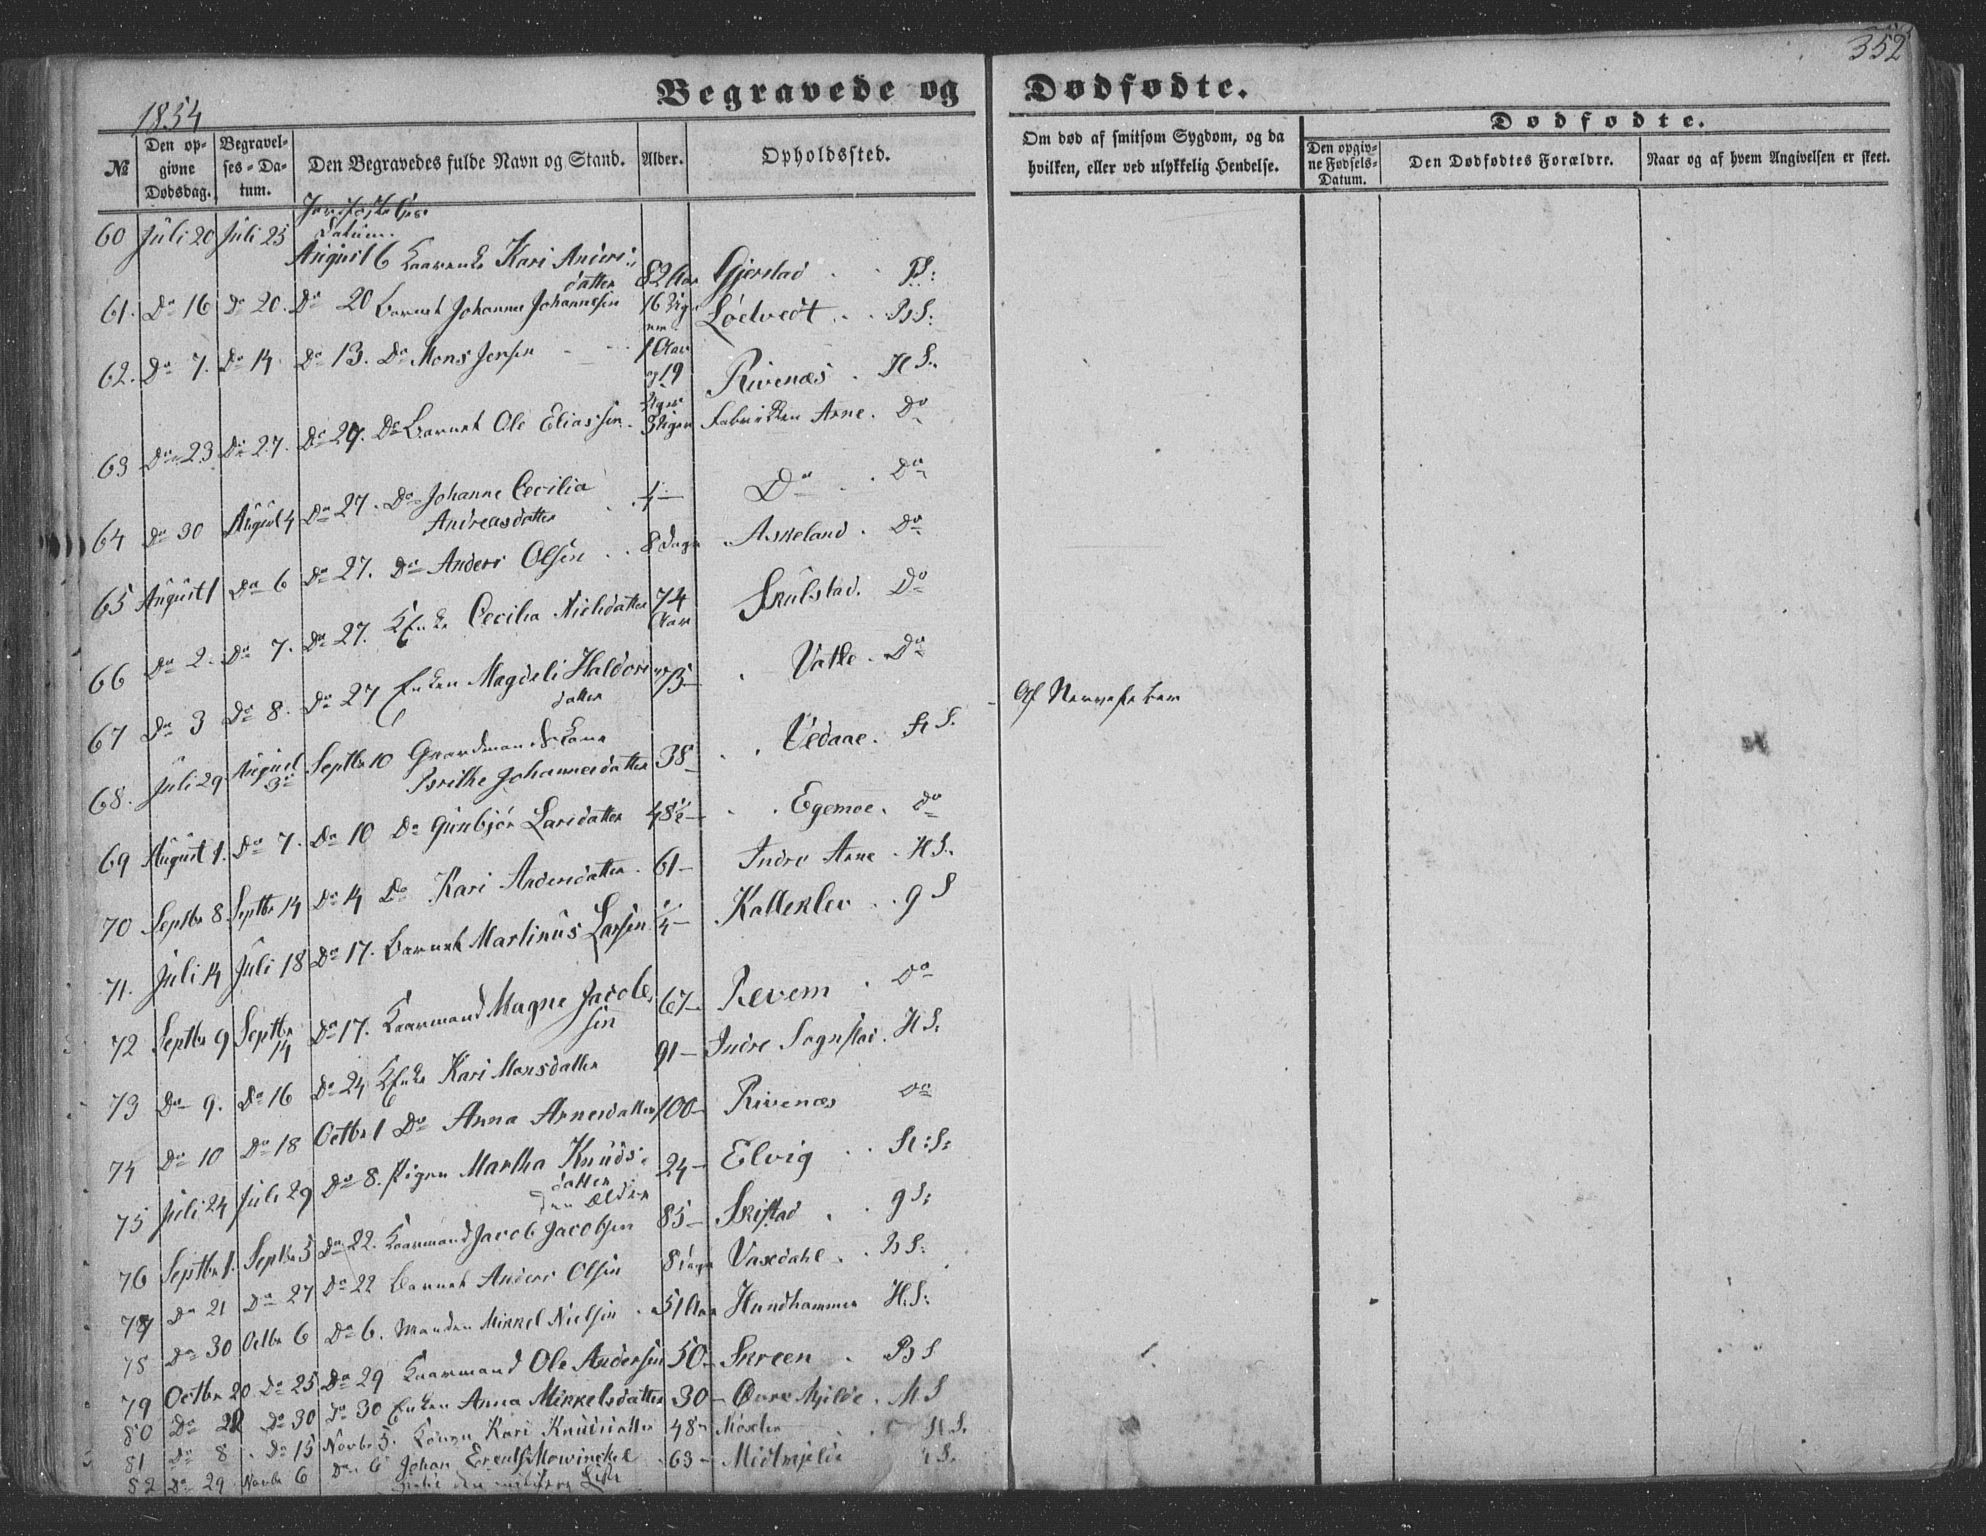 352
Begravede og Dødfødte.
1854
Dødfødte.
№
Den opgivne Dødsdag.
Begravelses-Datum.
Den Begravedes fulde Navn og Stand.
Alder.
Opholdssted.
Om død af smitsom Sygdom, og da hvilken, eller ved ulykkelig Hendelse.
Den opgivne Fødsels-Datum.
Den Dødfødtes Forældre.
Naar og af hvem Angivelsen er skeet.
Datum.
60 Juli 20 Juli 25 August 6 Kaarenke Kari Anders-
datter 82 Aar Gjerstad
61. Do 16 Do 20. Do 20 Barnet Johannes Johannesen 16 Lødvedt B S:
62. Do 7. Do 14 Do 13. Do Mons Jensen 1 Aar
og 19 Rivenæs H S.
63 Do 23 Do 27. Do 27. Do Barnet Ole Eliassen 3 Uger Fabrikken Arne. Do
64 Do 30 August 4 Do 27. Do Johanne Cecilia
Andreasdatter Do Do
65 August 1 Do 6 Do 27. Do Anders Olsen 8 Dage Askeland. Do
66 Do 2. Do 7. Do 27. Cecilia Nielsdatter 74
Aar Skulstad. Do
67 Do 3 Do 8. Do 27 Enken Magdeli Haldors
datter 73 Vatle. Do
Af Nervefeber
68. Juli 29 August 3 Septbr 10 Gaardmandskone
Brithe Johannesdatter 38 Vedaae. S.
69 August 1. Do 7. Do 10 Do Gunbjør Larsdatter 48½ Egemoe. do
70 Septbr 8 Septbr 14 Do 14 Do Kari Andersdatter. 61 Indre Arne H S.
71. Juli 14 Juli 18 Do 17. Barnet Martinus Larsen Kalleklev g S
72 Septbr 9 Septbr
14 Do 17. Kaarmand Magne Jacob-
sen 67 Revem Do
73 Do 9. Do 16 Do 24 Kari Monsdatter 91 Indre Sognstad. H S.
74 Do 10 Do 18 Octbr 1 Do Anna Arnesdatter 100 Rivenæs Do
75 Juli 24 Juli 29 Do 8. Pigen Martha Knuds-
datter
den Ældre 24 Elvig S:
76 Septbr 1. Septbr 5 Do 22. Kaarmand Jacob Jacobsen 85 Skistad g S:
77 Do 21 Do 27 Do 22 Barnet Anders Olsen 8 Dage Vaxdahl B S:
78 Do 30 Octbr 6 Do 6. Manden Mikkel Nielsen 51 Aar Hundhammer H. S:
79 Octbr 20 Do 25 Do 29 Kaarmand Ole Andersen 50 Skreen B S
80 Do Do 30 Do 30 Enken Anna Mikkelsdatter 30 Øvre Mjelde H S
81 Do 8 Do 15 Novbr 5. Konen Kari Knudsdatter 48 S.
82 Do 29 Novbr 6 Do 6 Johan Mowinckel 63 Midtmjelde S.